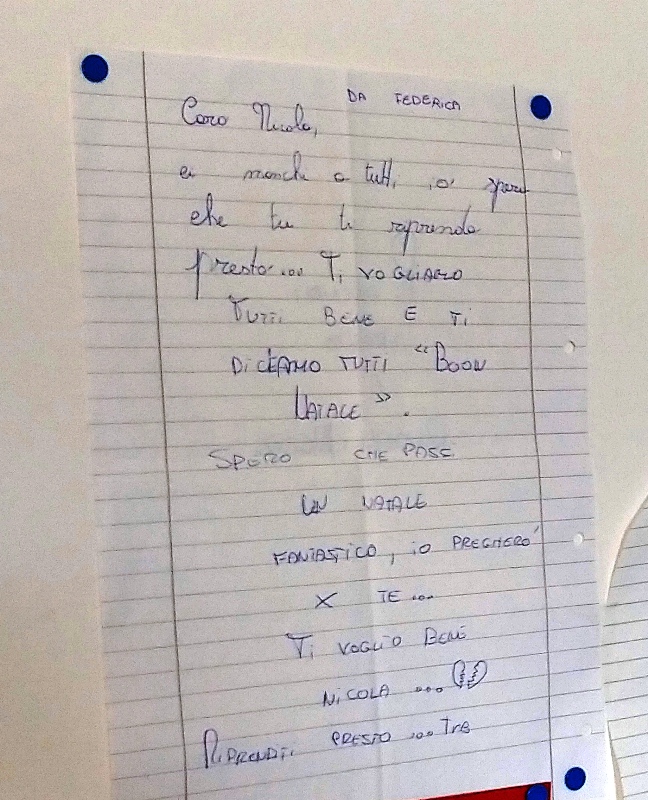 DA FEDERICA
Caro Nicola,
ci manchi a tutti, io spero
che tu ti riprenda
presto... Ti VOGLIAMO
TUTTI BENE E Ti
DiCIAMO TUTTI “BOON
NATALE”.
SPERO CHE PASSI
UN NATALE
FANTASTiCO, iO PREGHERO'
X TE...
Ti VOGLiO BENE
NiCOLA ...
RiPRENDiTi PRESTO ...